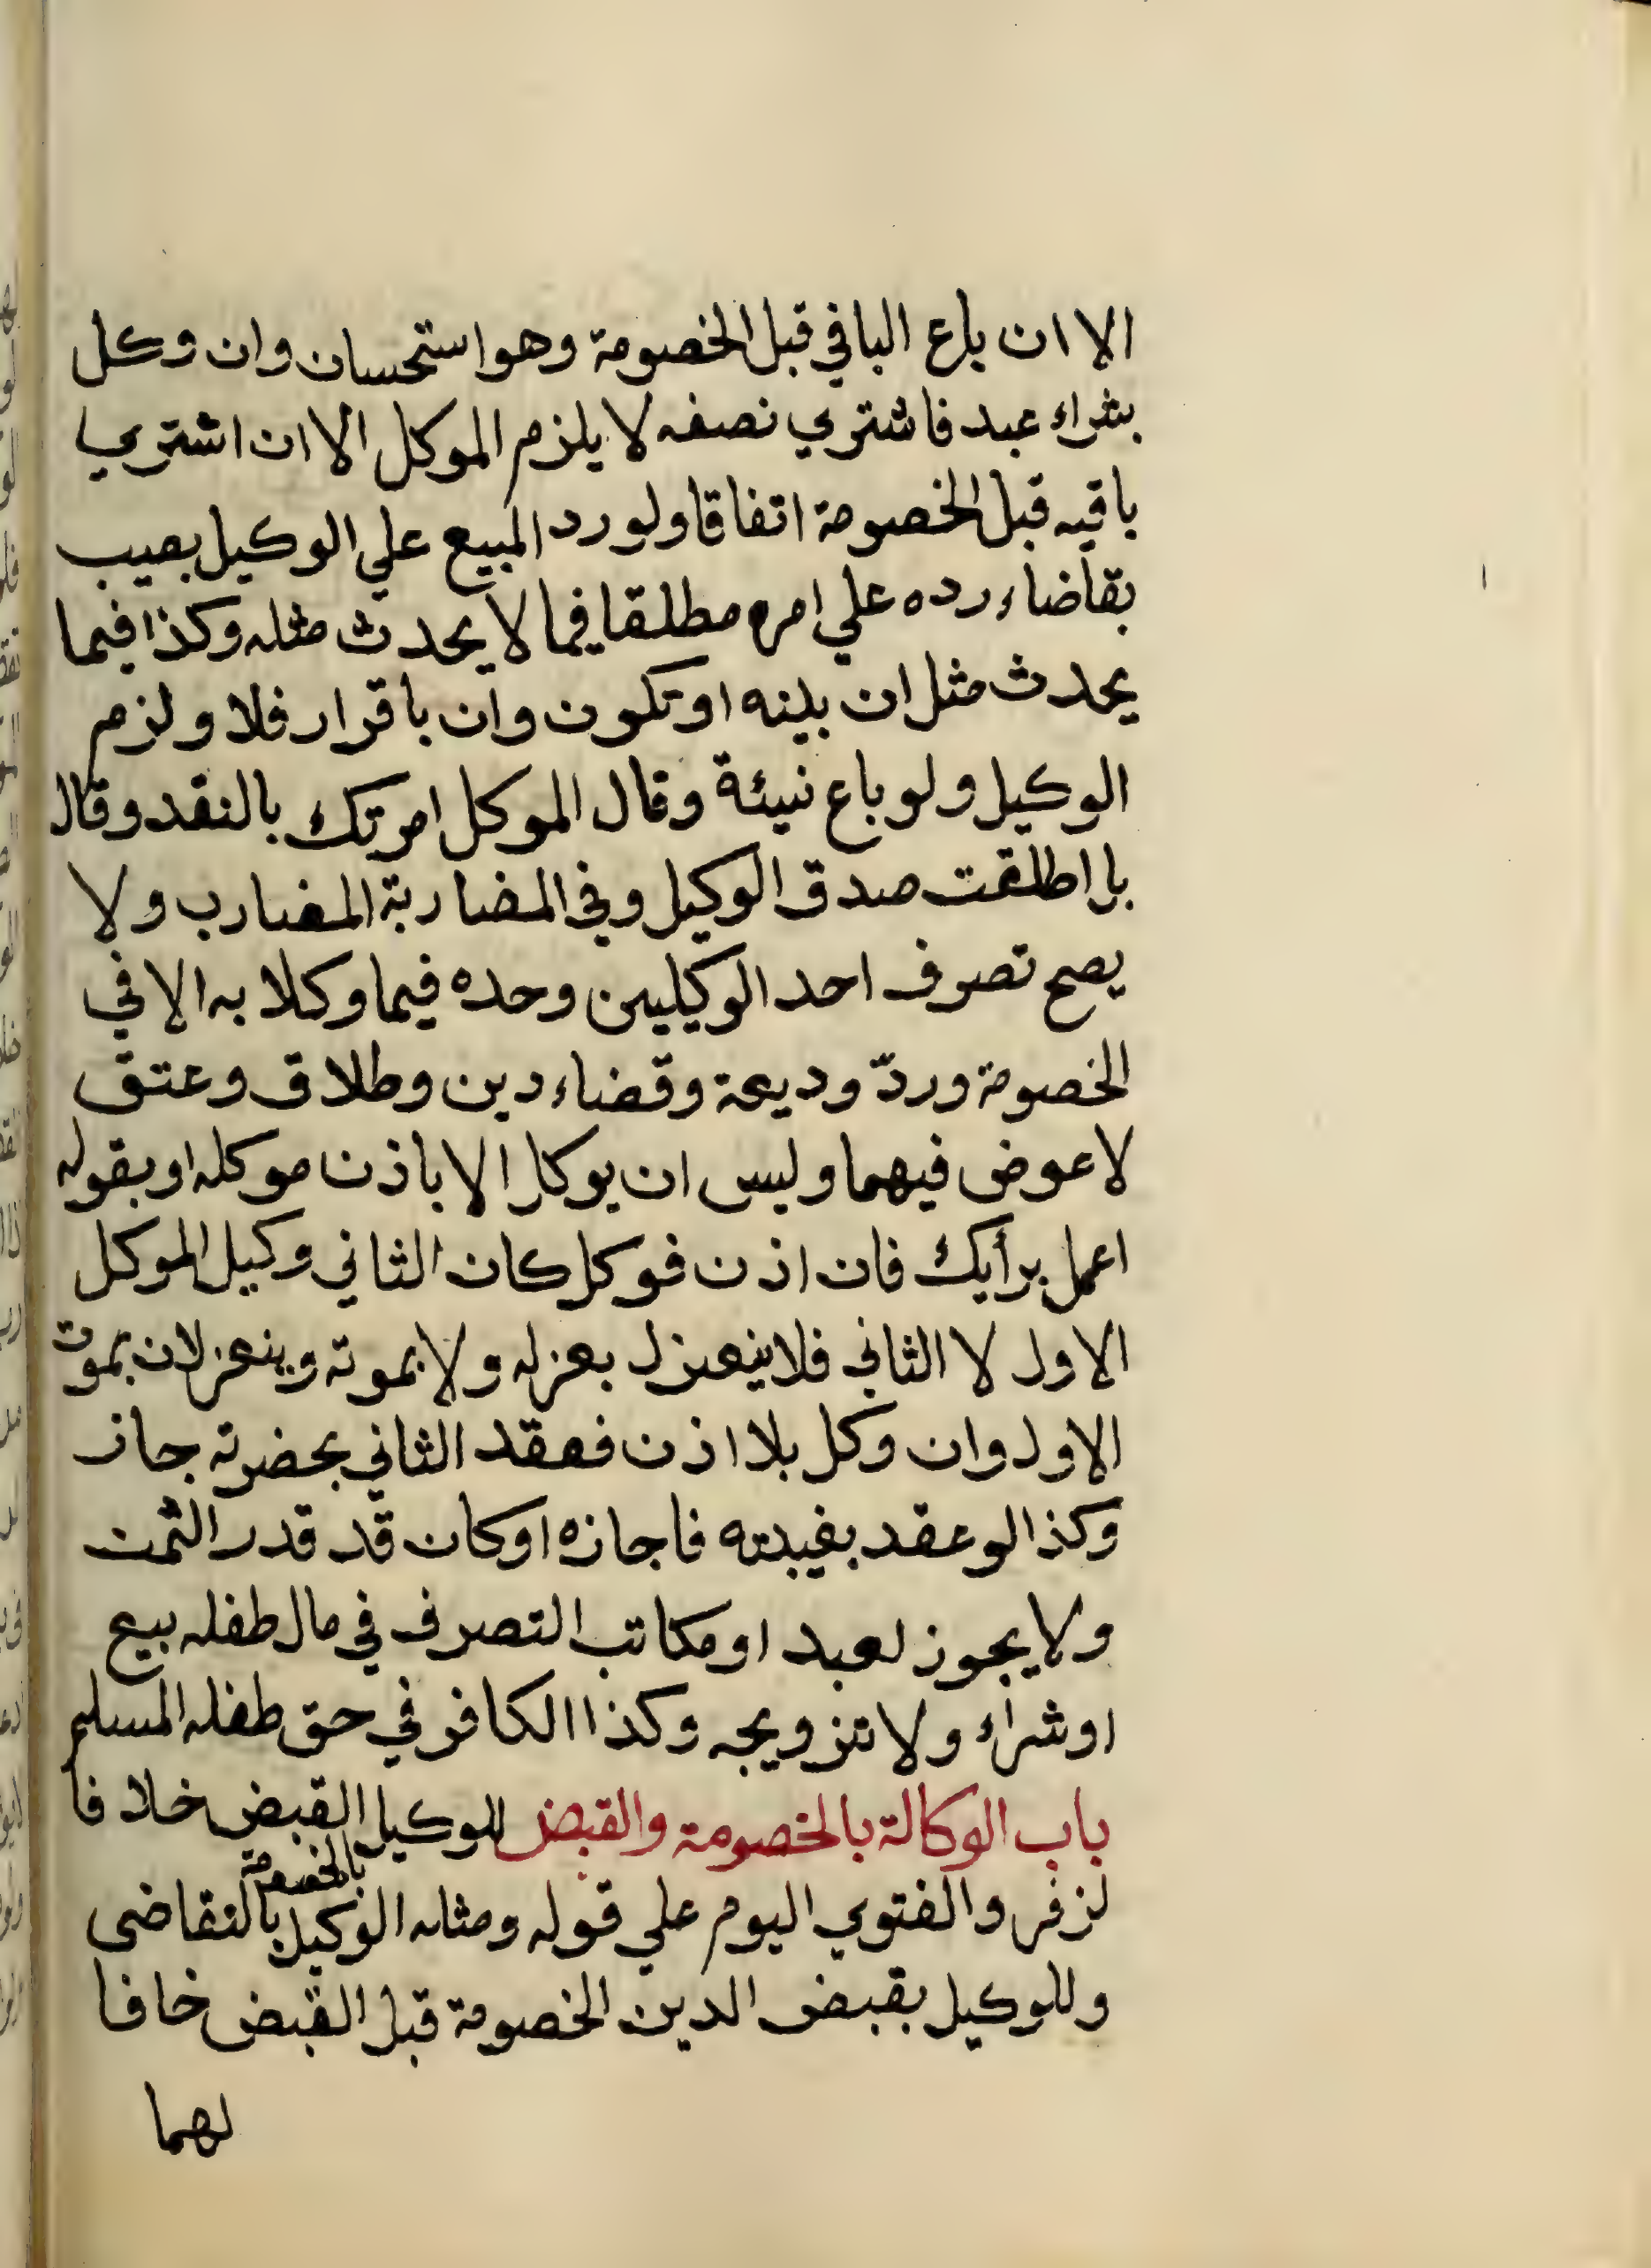 الا ان باع الباقي قبل الخصومة وهو استحسان وان وكل
بشراء عبد فاشتري نصفه لا يلزم الموكل الا ان اشتري
باقيه قبل الخصومة اتفاقا ولو رد المبيع علي الوكيل بعيب
بقاضاء رده علي امره مطلقا فيما لا يحدث مثله وكذا فيما
يحدث مثل ان بينه او تكون وان باقرار فلا ولزم
الوكيل ولو باع نسيئة وقال الموكل امرتك بالنقد وقال
بل اطلقت صدق الوكيل وفي المضاربة المضارب ولا
يصح تصرف احد الوكيلين وحده فيما وكلا به الا في
الخصومة وردّ وديعة وقضاء دين وطلاق وعتق
لا عوض فيهما وليس ان يوكل الا باذن موكله او بقوله
اعمل برأيك فان اذن فوكل كان الثاني وكيل الموكل
الاول لا الثاني فلا ينعزل بعزله ولا بموته وينعزلان بموت
الاول وان وكل بلا اذن فعقد الثاني بحضرته جاز
وكذا لو عقد بغيبته فاجازه او كان قد قدر الثمن
ولا يجوز لعبد او مكاتب التصرف في مال طفله ببيع
او شراء ولا تزويجه وكذا الكافر في حق طفله المسلم
باب الوكالة بالخصومة والقبض للوكيل القبض خلافا
بالخصومة
لزفر والفتوي اليوم علي قوله ومثله الوكيل بالتقاضى
وللوكيل بقبض الدين الخصومة قبل القبض خافا
لهما